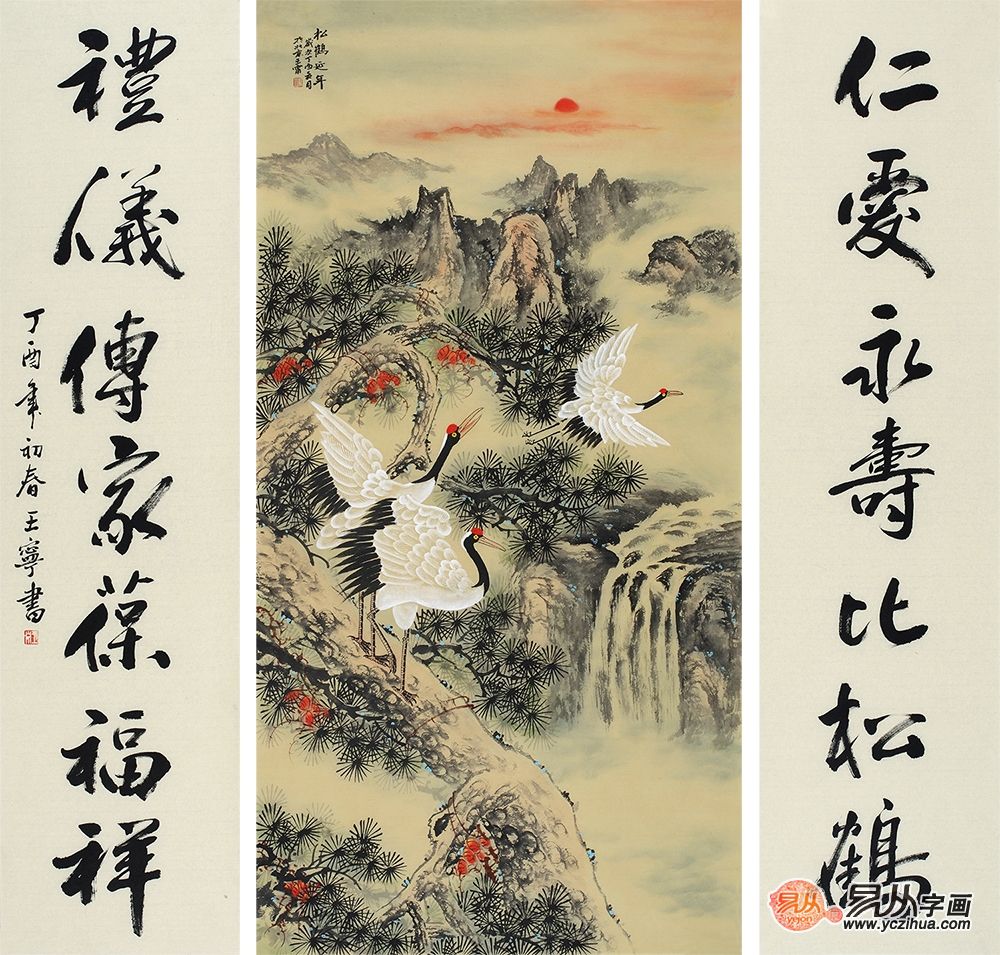 仁愛永壽比松鶴
松鶴延年
禮儀傳家葆福祥
丁酉年初春王寧書
易从
yicon
易从字画
www.yczihua.com